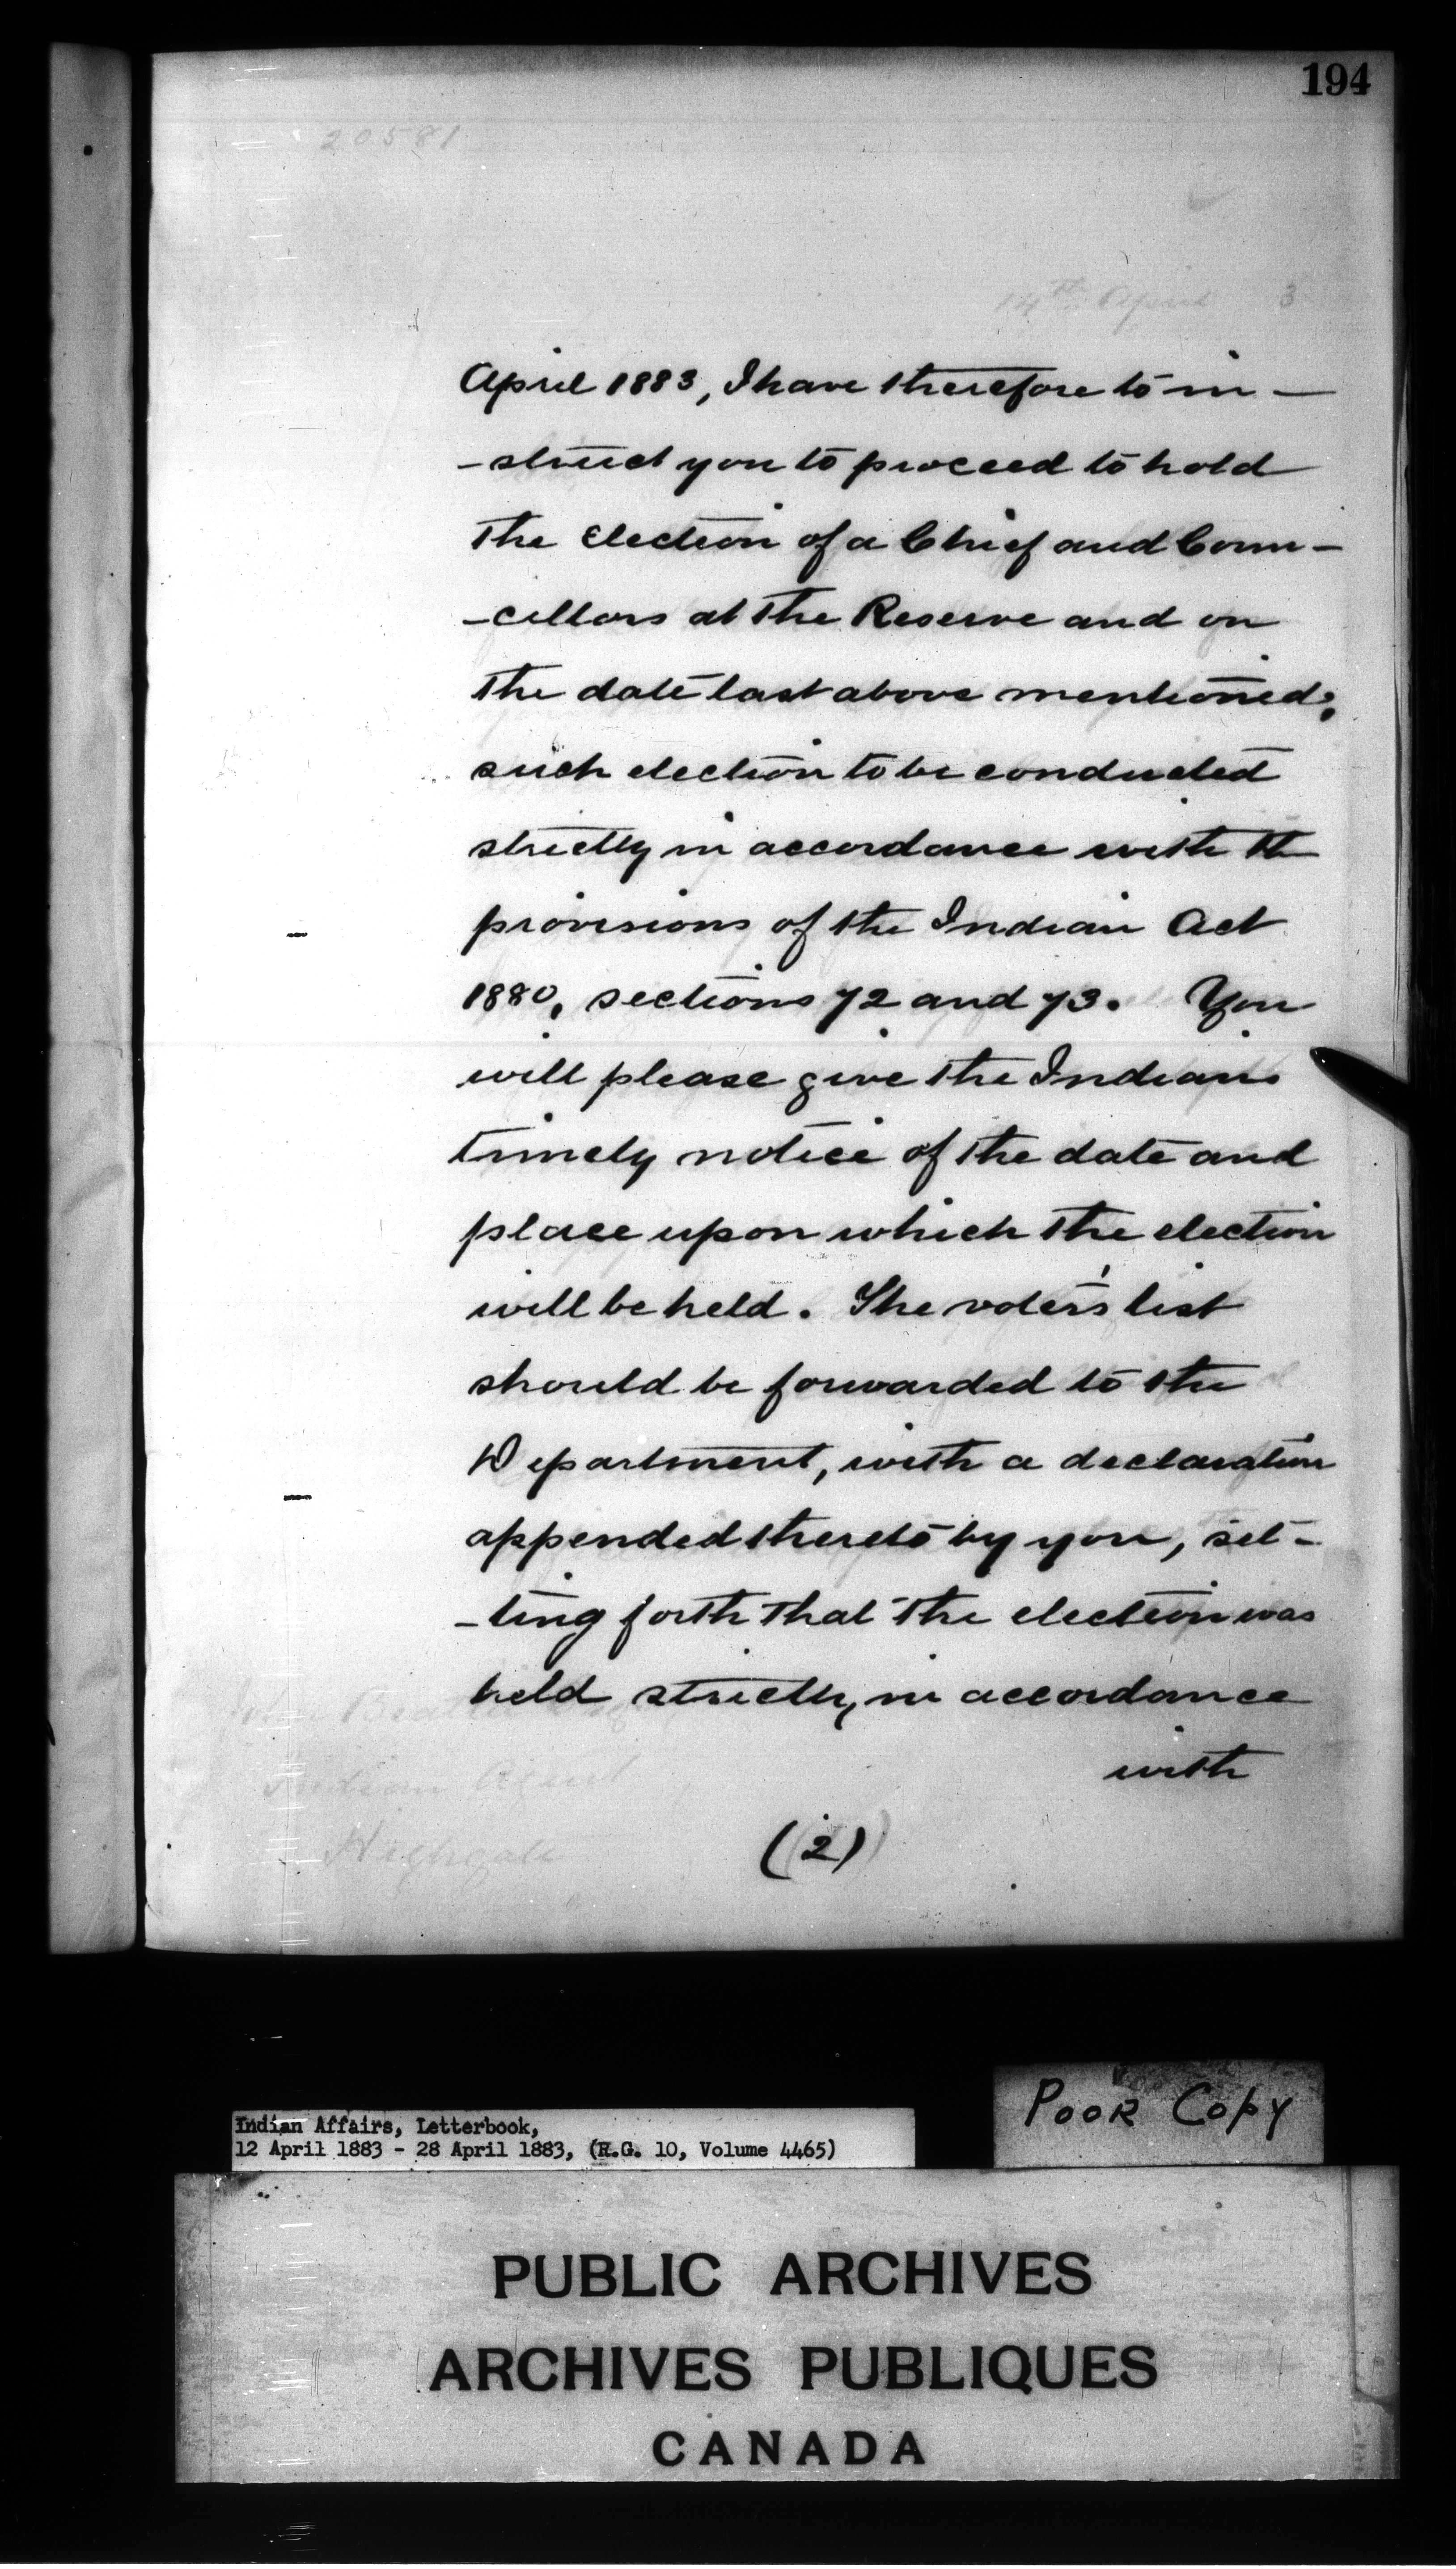 194
20581
14th April 3
April 1883, I have therefore to in-
-struct you to proceed to hold
the Election of a Chief and Coun-
-cillors at the Reserve and on
the date last above mentioned;
such election to be conducted
strictly in accordance with the
provisions of the Indian Act
1880, sections 72 and 73. You
will please give the Indians
timely notice of the date and
place upon which the election
will be held. The voter's list
should be forwarded to the
Department, with a declaration
appended thereto by you, set-
-ting forth that the election was
held strictly, in accordance
with
(2)
Indian Agent
Highgate
Poor Copy
Indian Affairs, Letterbook,
12 April 1883 - 28 April 1883, (R.G. 10, Volume 4465)
PUBLIC ARCHIVES
ARCHIVES PUBLIQUES
CANADA